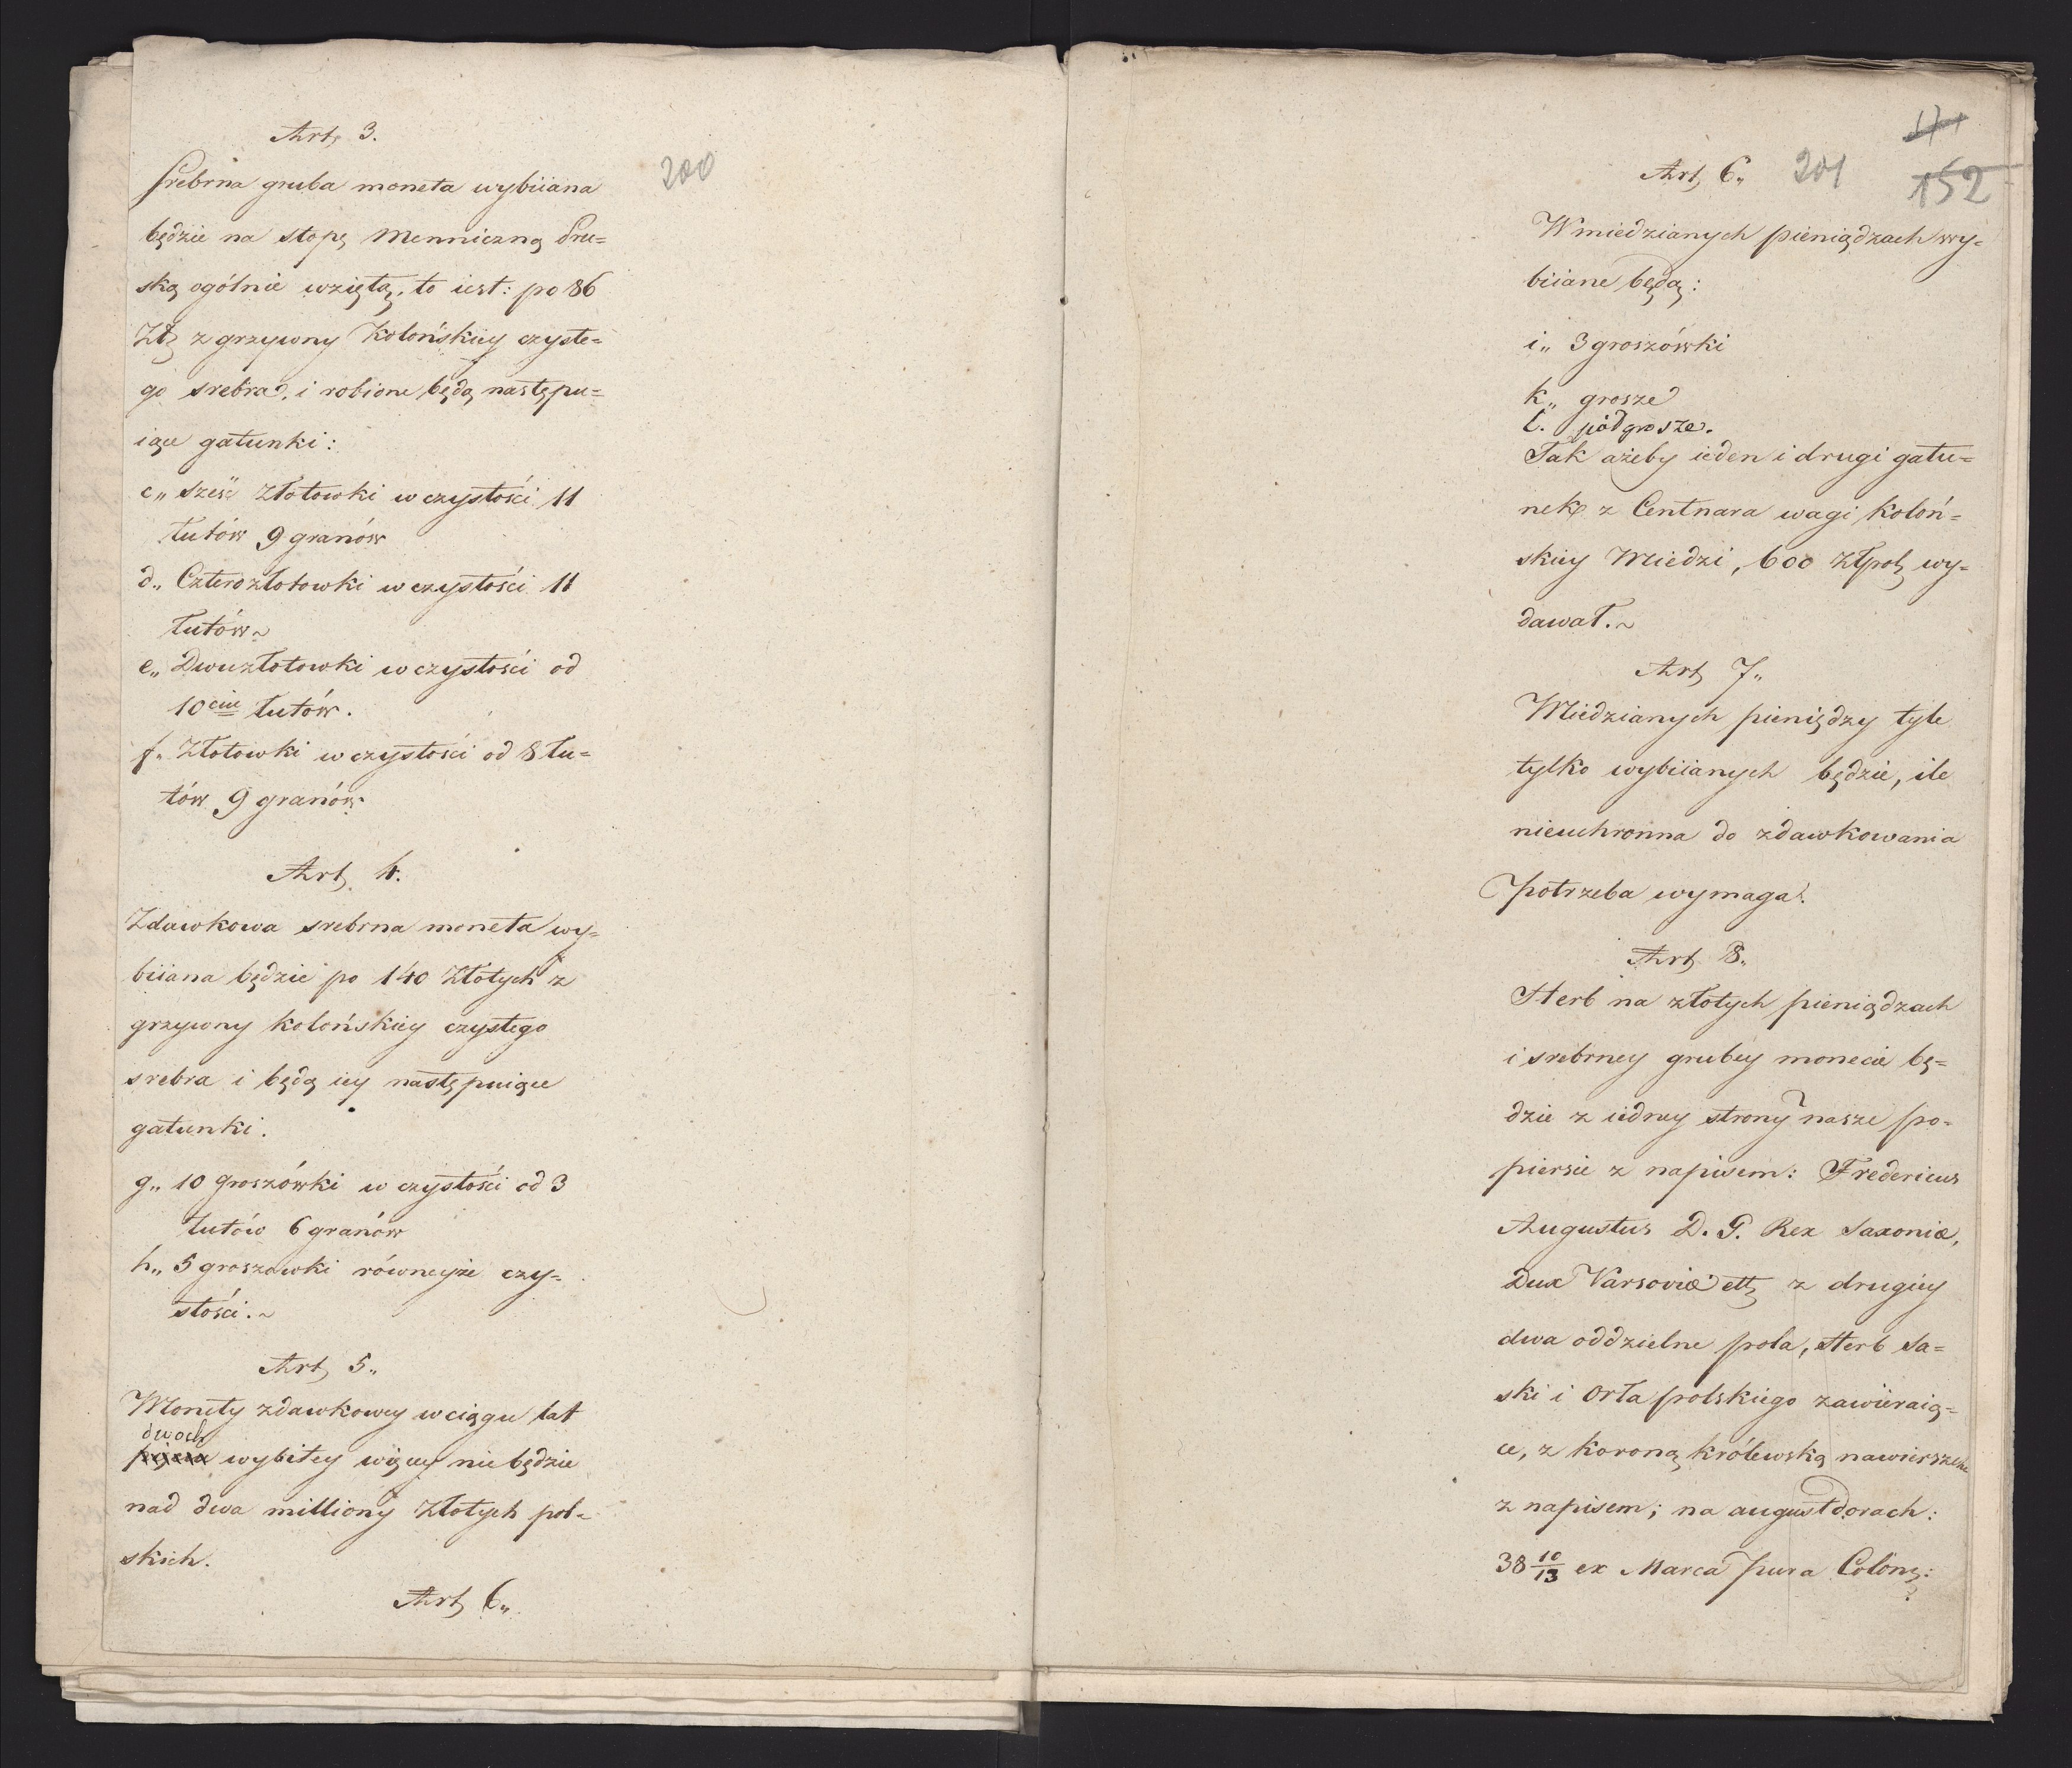 Art. 3.
200
Srebrna gruba moneta wybiiana
będzie na stopę Menniczną Pru=
ską ogólnie wziętą, to iest: po 86
Zł. z grzywny Kolońskiey czyste=
go srebra, i robione będą następu=
iące gatunki:
c„ sześć złotowki w czystości 11
łutów 9 granów
d„ Czterozłotowki w czystości 11
łutów~
e„ Dwuzłotowki w czystości od
10ciu łutów.
f„ Złotowki w czystości od 8 łu=
tów 9 granów
Art. 4.
Zdawkowa srebrna moneta wy=
biiana będzie po 140 Złotych z
grzywny kolońskiey czystego
srebra i będą iey następuiące
gatunki.
g„ 10 groszówki w czystości od 3
łutów 6 granów
h„ 5 groszowki równeyże czy=
stości.~
Art. 5„
Monety zdawkowey w ciągu lat
dwoch
pięciu wybitey więcey nie będzie
nad dwa milliony Złotych pol=
skich.
Art. 6„
171
Art. 6„ 201
152
W miedzianych pieniądzach wy=
biiane będą:
i„ 3 groszówki
k„ grosze
l. półgrosze.
Tak ażeby ieden i drugi gatu=
nek z Centnara wagi koloń=
skiey Miedzi, 600 złpol. wy=
dawał.~
Art. 7„
Miedzianych pieniędzy tyle
tylko wybiianych będzie, ile
nieuchronna do zdawkowania
potrzeba wymaga.
Art. 8„
Herb na złotych pieniądzach
i srebrney grubey monecie bę=
dzie z iedney strony nasze po=
piersie z napisem: Fredericus
Augustus D. G. Rex Saxoniæ,
Dux Varsoviæ ett. z drugiey
dwa oddzielne pola, Herb Sa=
ski i Orła polskiego zawieraią=
ce, z koroną królewską na wierszchu
z napisem; na augustdorach:
38 10/13 ex Marca pura Colon.: